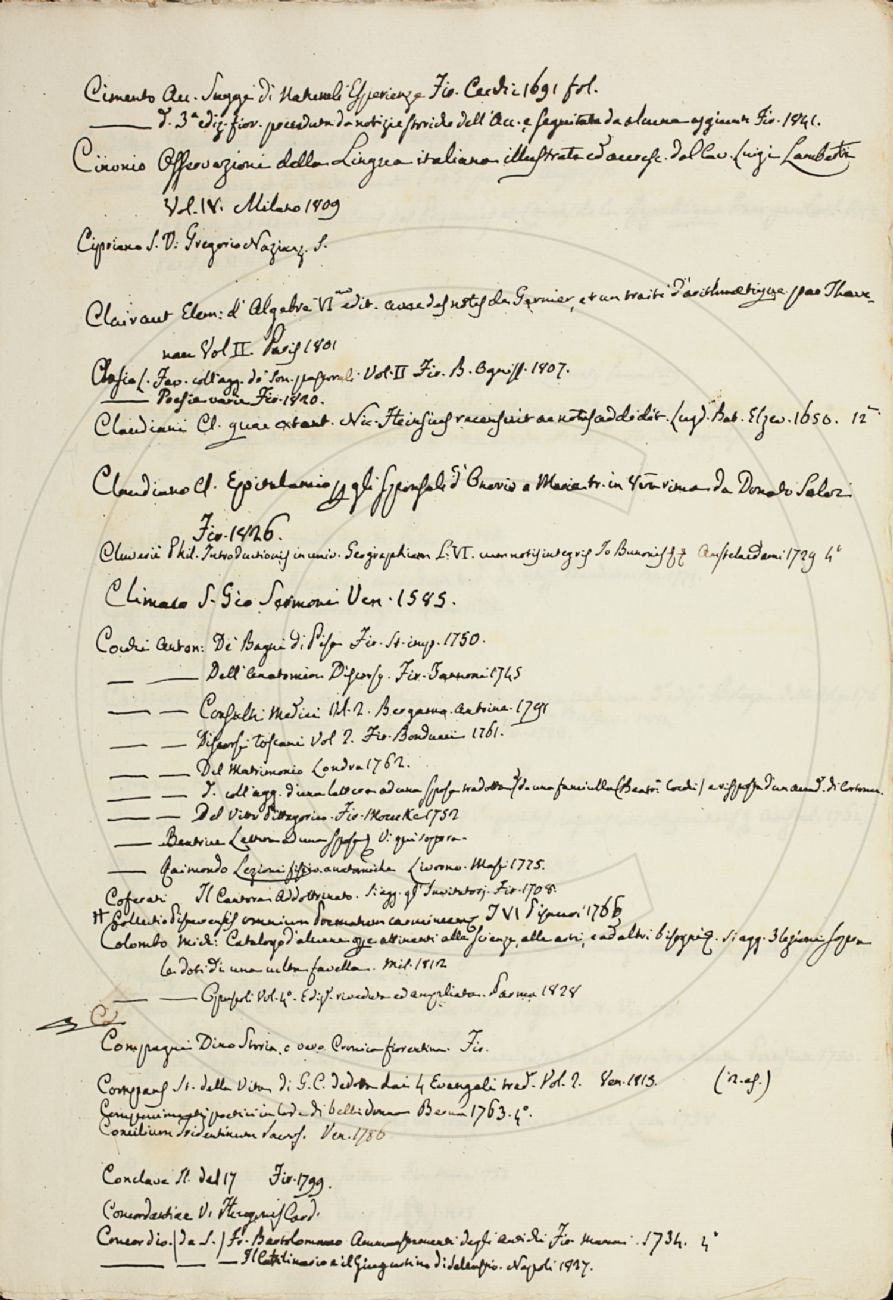 Cimento Acc. Saggi di Naturali Esperienze Fir. Cecchi 1691 fol.
——— d. 3ª ediz. fior. preceduta da notizie storiche dell'Acc. e seguitata da alcune aggiunte Fir. 1841.
Cinonio Osservazioni della Lingua italiana illustrate ed accresc. dal Cav. Luigi Lamberti
Vol. IV. Milano 1809
Cipriano S. V. Gregorio Nazianz. S.
Clairaut Elem: d'Algebre VI edit. avec des notes de Garnier, et un traité d'arithmetique par Theve-
neau Vol II. Paris 1801
Clasio L. Fav. coll'agg. de' Son. pastorali Vol. II Fir. B. Ogniss. 1807.
——— Poesie varie Fir. 1820.
Claudiani Cl. quae extant. Nic. Heinsius recensuit ac notas addidit. Lugd. Bat. Elzev. 1650. 12º
Claudiano Cl. Epitalamio p gli Sponsali d'Onorio e Maria tr. in verso rima da Donato Salvi
Fir. 1826.
Cluverii Phil. Introductionis in univ. Geographiam L. VI. cum notis integris Io Bunonis Amstelaedami 1729 4º
Climaco S. Gio Sermoni Ven. 1585.
Cocchi Anton: De' Bagni di Pisa Fir. St. imp. 1750.
— —— Dell'Anatomia Discorso. Fir. 1745
—— —— Consulti Medici Vol. 2. Bergamo. Antoine. 1791
—— —— Discorsi Toscani Vol 2. Fir. Bonducci 1761.
—— —— Del Matrimonio Londra 1762.
—— —— d. coll'agg. d'una lettera ad una sposa tradotta da una fanciulla (Beatr. Cocchi) e risposta d'un accad. di Cortona.
—— —— Del Vitto Pittagorico. Fir. Moucke 1752
—— Beatrice Lettera ad una sposa V. qui sopra.
—— Raimondo Lezioni fisico. anatomiche Livorno. Masi 1775.
Coferati Il Cantore Addottrinato. Fir. 1708.
Collectio Pisaurensis omnium Poematum carminum T VI Pisauri 1766
Colombo Mich: Catalogo d'alcune opere attinenti alle Scienze, alle arti, e ad altri bisogni. Si agg. 3 lezioni sopra
le doti di una culta favella. Mil. 1812
—— —— Opuscoli Vol. 4º. Ediz. riveduta ed ampliata. Parma 1828
Co
Compagni Dino Storia, o vero Cronica fiorentina. Fir.
Compans St. della Vita di G. C. dedotta dai 4 Evangeli trad. Vol. 2. Ven. 1813. (2. es.)
Componimenti poetici in lode di belle donne 1763. 4º.
Concilium Tridentinum Sacros. Ven. 1786
Conclave St. del 17 Fir. 1799.
Concordantiae V. Card.
Concordio. (da S.) Fr. Bartolommeo Ammaestramenti degli Antichi Fir. Manni. 1734. 4º
——— —— — Il Catilinario e il Giugurtino di Salustio. Napoli 1827.